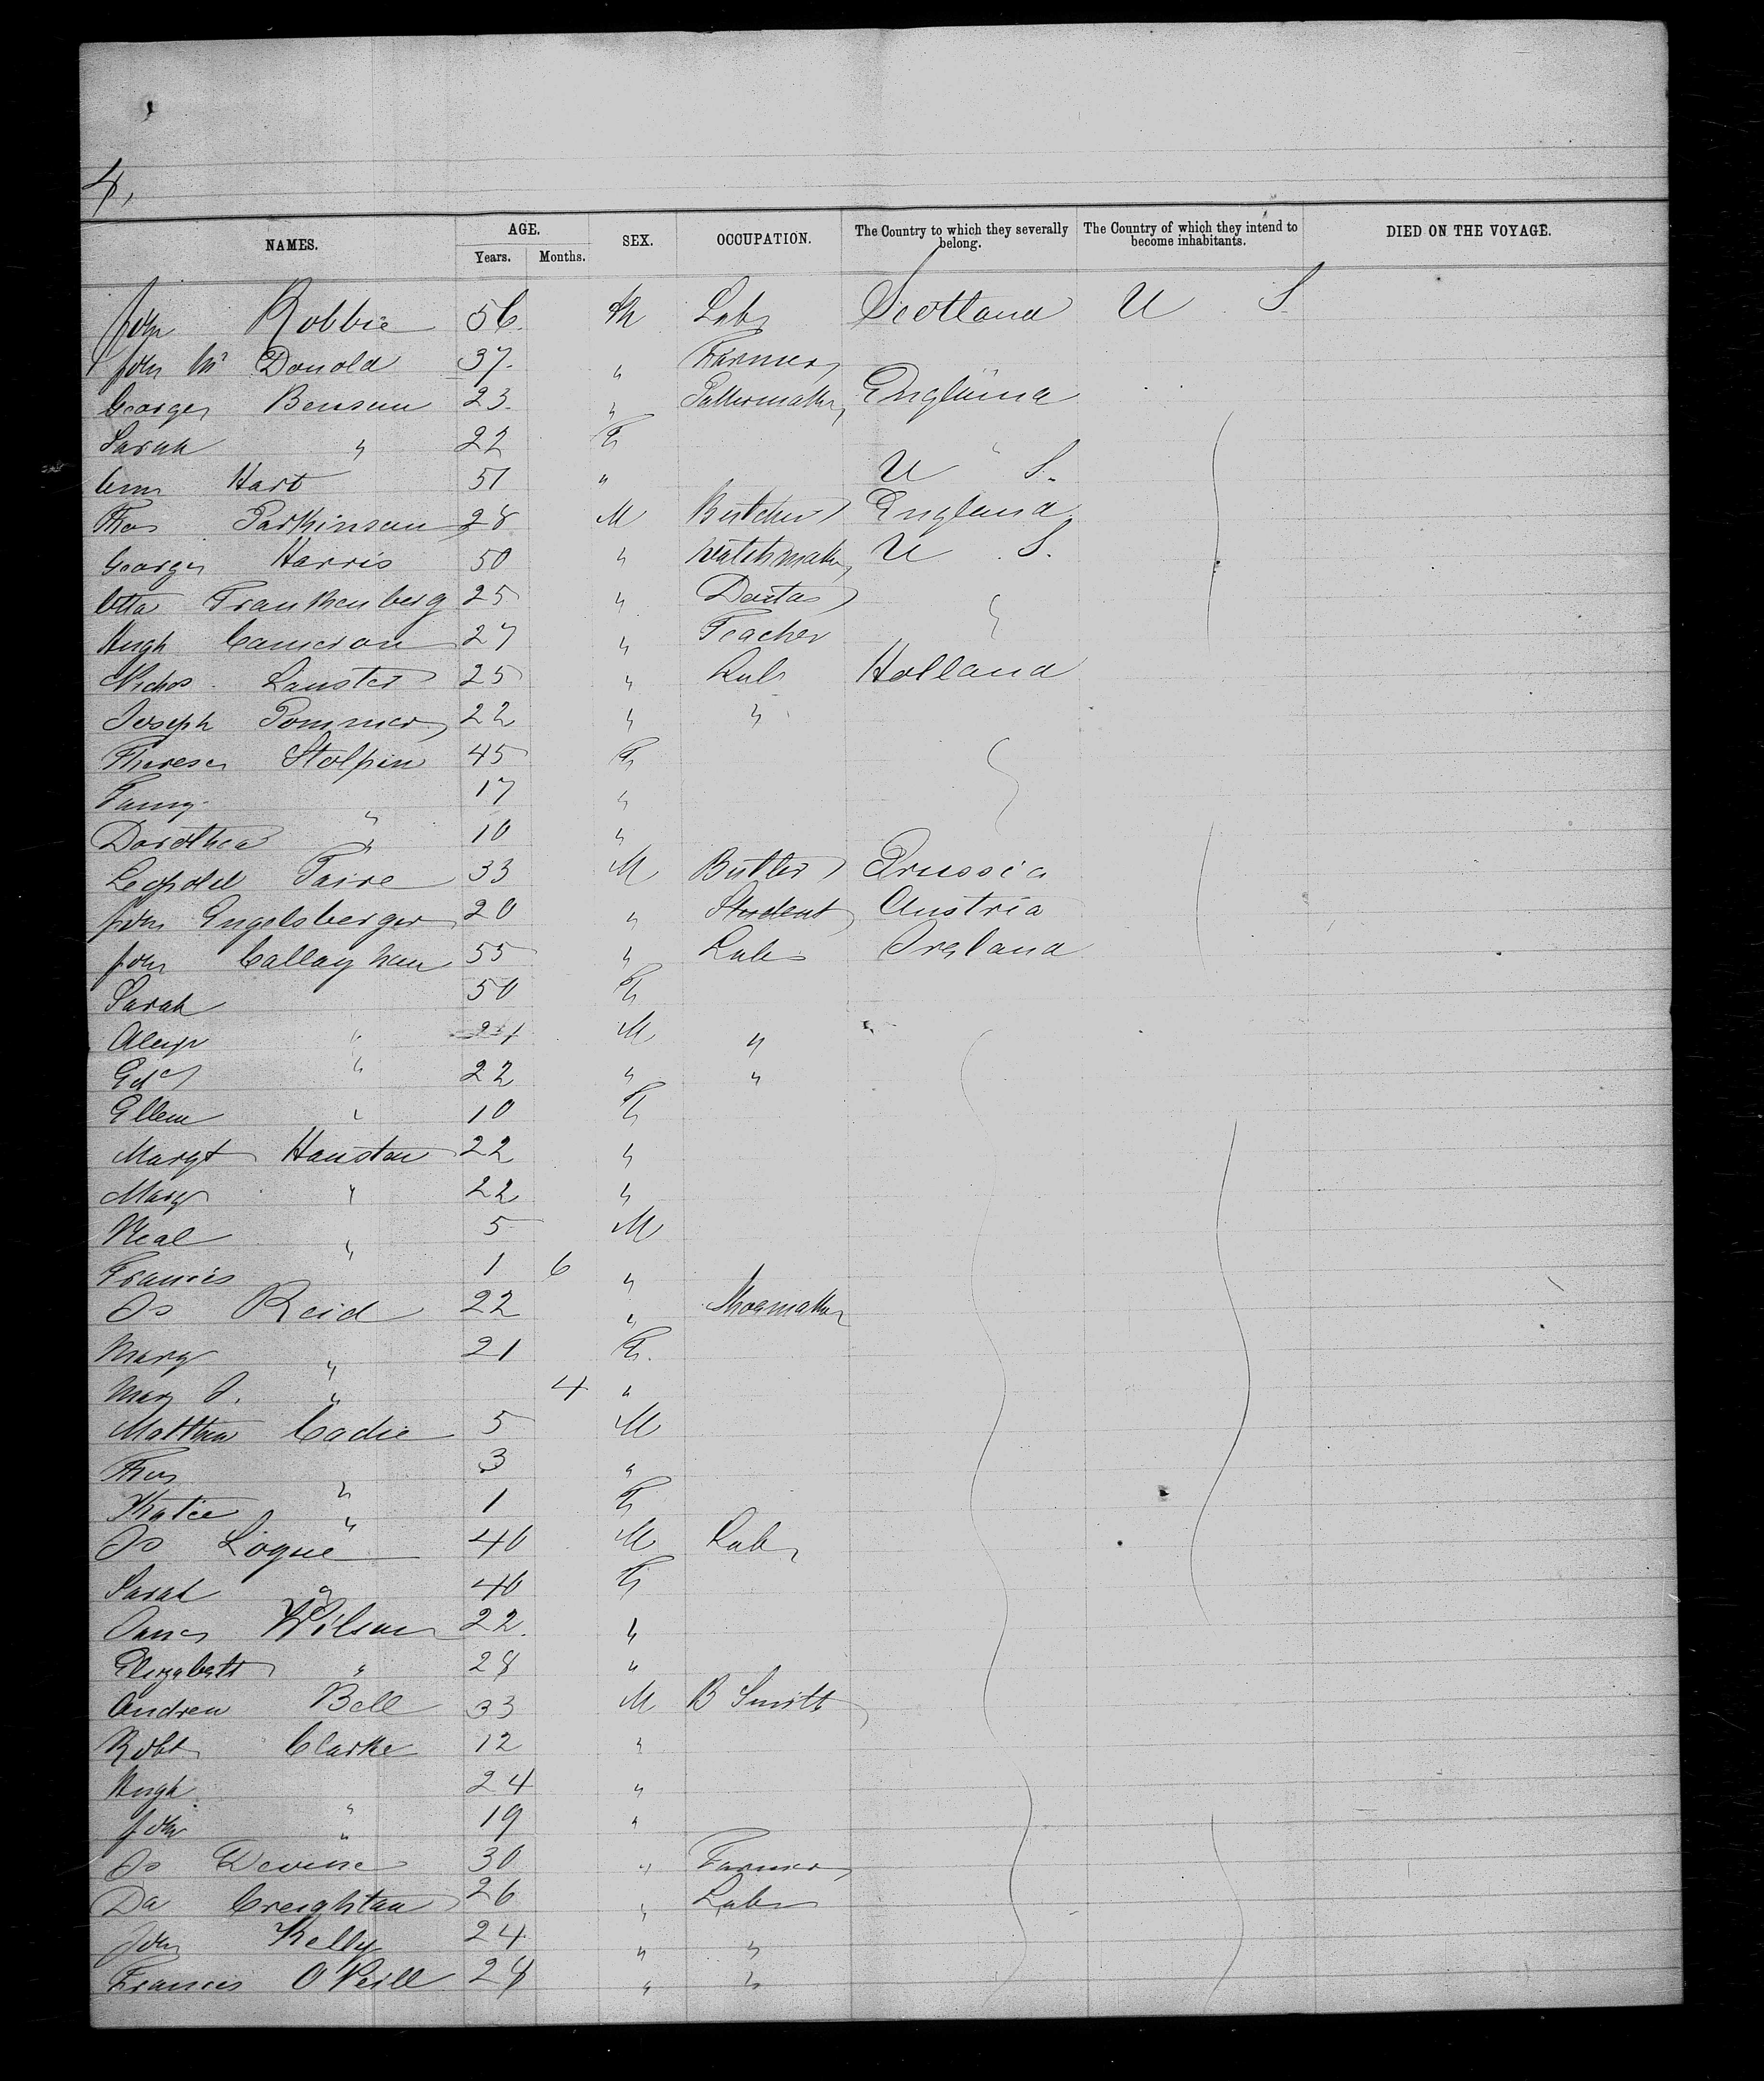 4,
NAMES. AGE. SEX. OCCUPATION. The Country to which they severally belong. The Country of which they intend to become inhabitants. DIED ON THE VOYAGE.
Years. Months.
John Robbie 56 M Labr Scotland U S.
John Mc Donold 37. " Farmer
George Benson 23. " England
Sarah " 22 F "
Ann Hart 51 " U S.
Thos Parkinson 28 M Butcher England
George Harris 50 " Watchmaker U S.
Otto Frankenberg 25 " "
Hugh Cameron 27 " Teacher
Nichos Lauster 25 " Labr Holland
Joseph Pommer 22 " "
Theresa Stolpin 45 F
Fanny " 17 "
Dorothea " 10 "
Leopold Faire 33 M Butler Prussia
John Engelsberger 20 " Student Austria
John Callaghan 55 " Labr Ireland
Sarah 50 F
" 21 M "
Edd " 22 " "
Ellen " 10 F
Margt Houston 22 "
Mary " 22 "
Neal " 5 M
Francis 1 6 "
Js Reid 22 " Shoemaker
Mary " 21 F.
Mary J. " 4 "
Matthew Cadie 5 M
Thos " 3 "
Katie " 1 F
Js Logue 40 M Labr
Sarah " 40 F
Wilson 22. "
Elizabeth " 28 "
Andrew Bell 33 M B Smith
Robt Clarke 12 "
Hugh " 24 "
John " 19 "
Js Devine 30 " Farmer
Da Creighton 26 " Labr
John Kelly 24 " "
Francis O'Neill 28 " "